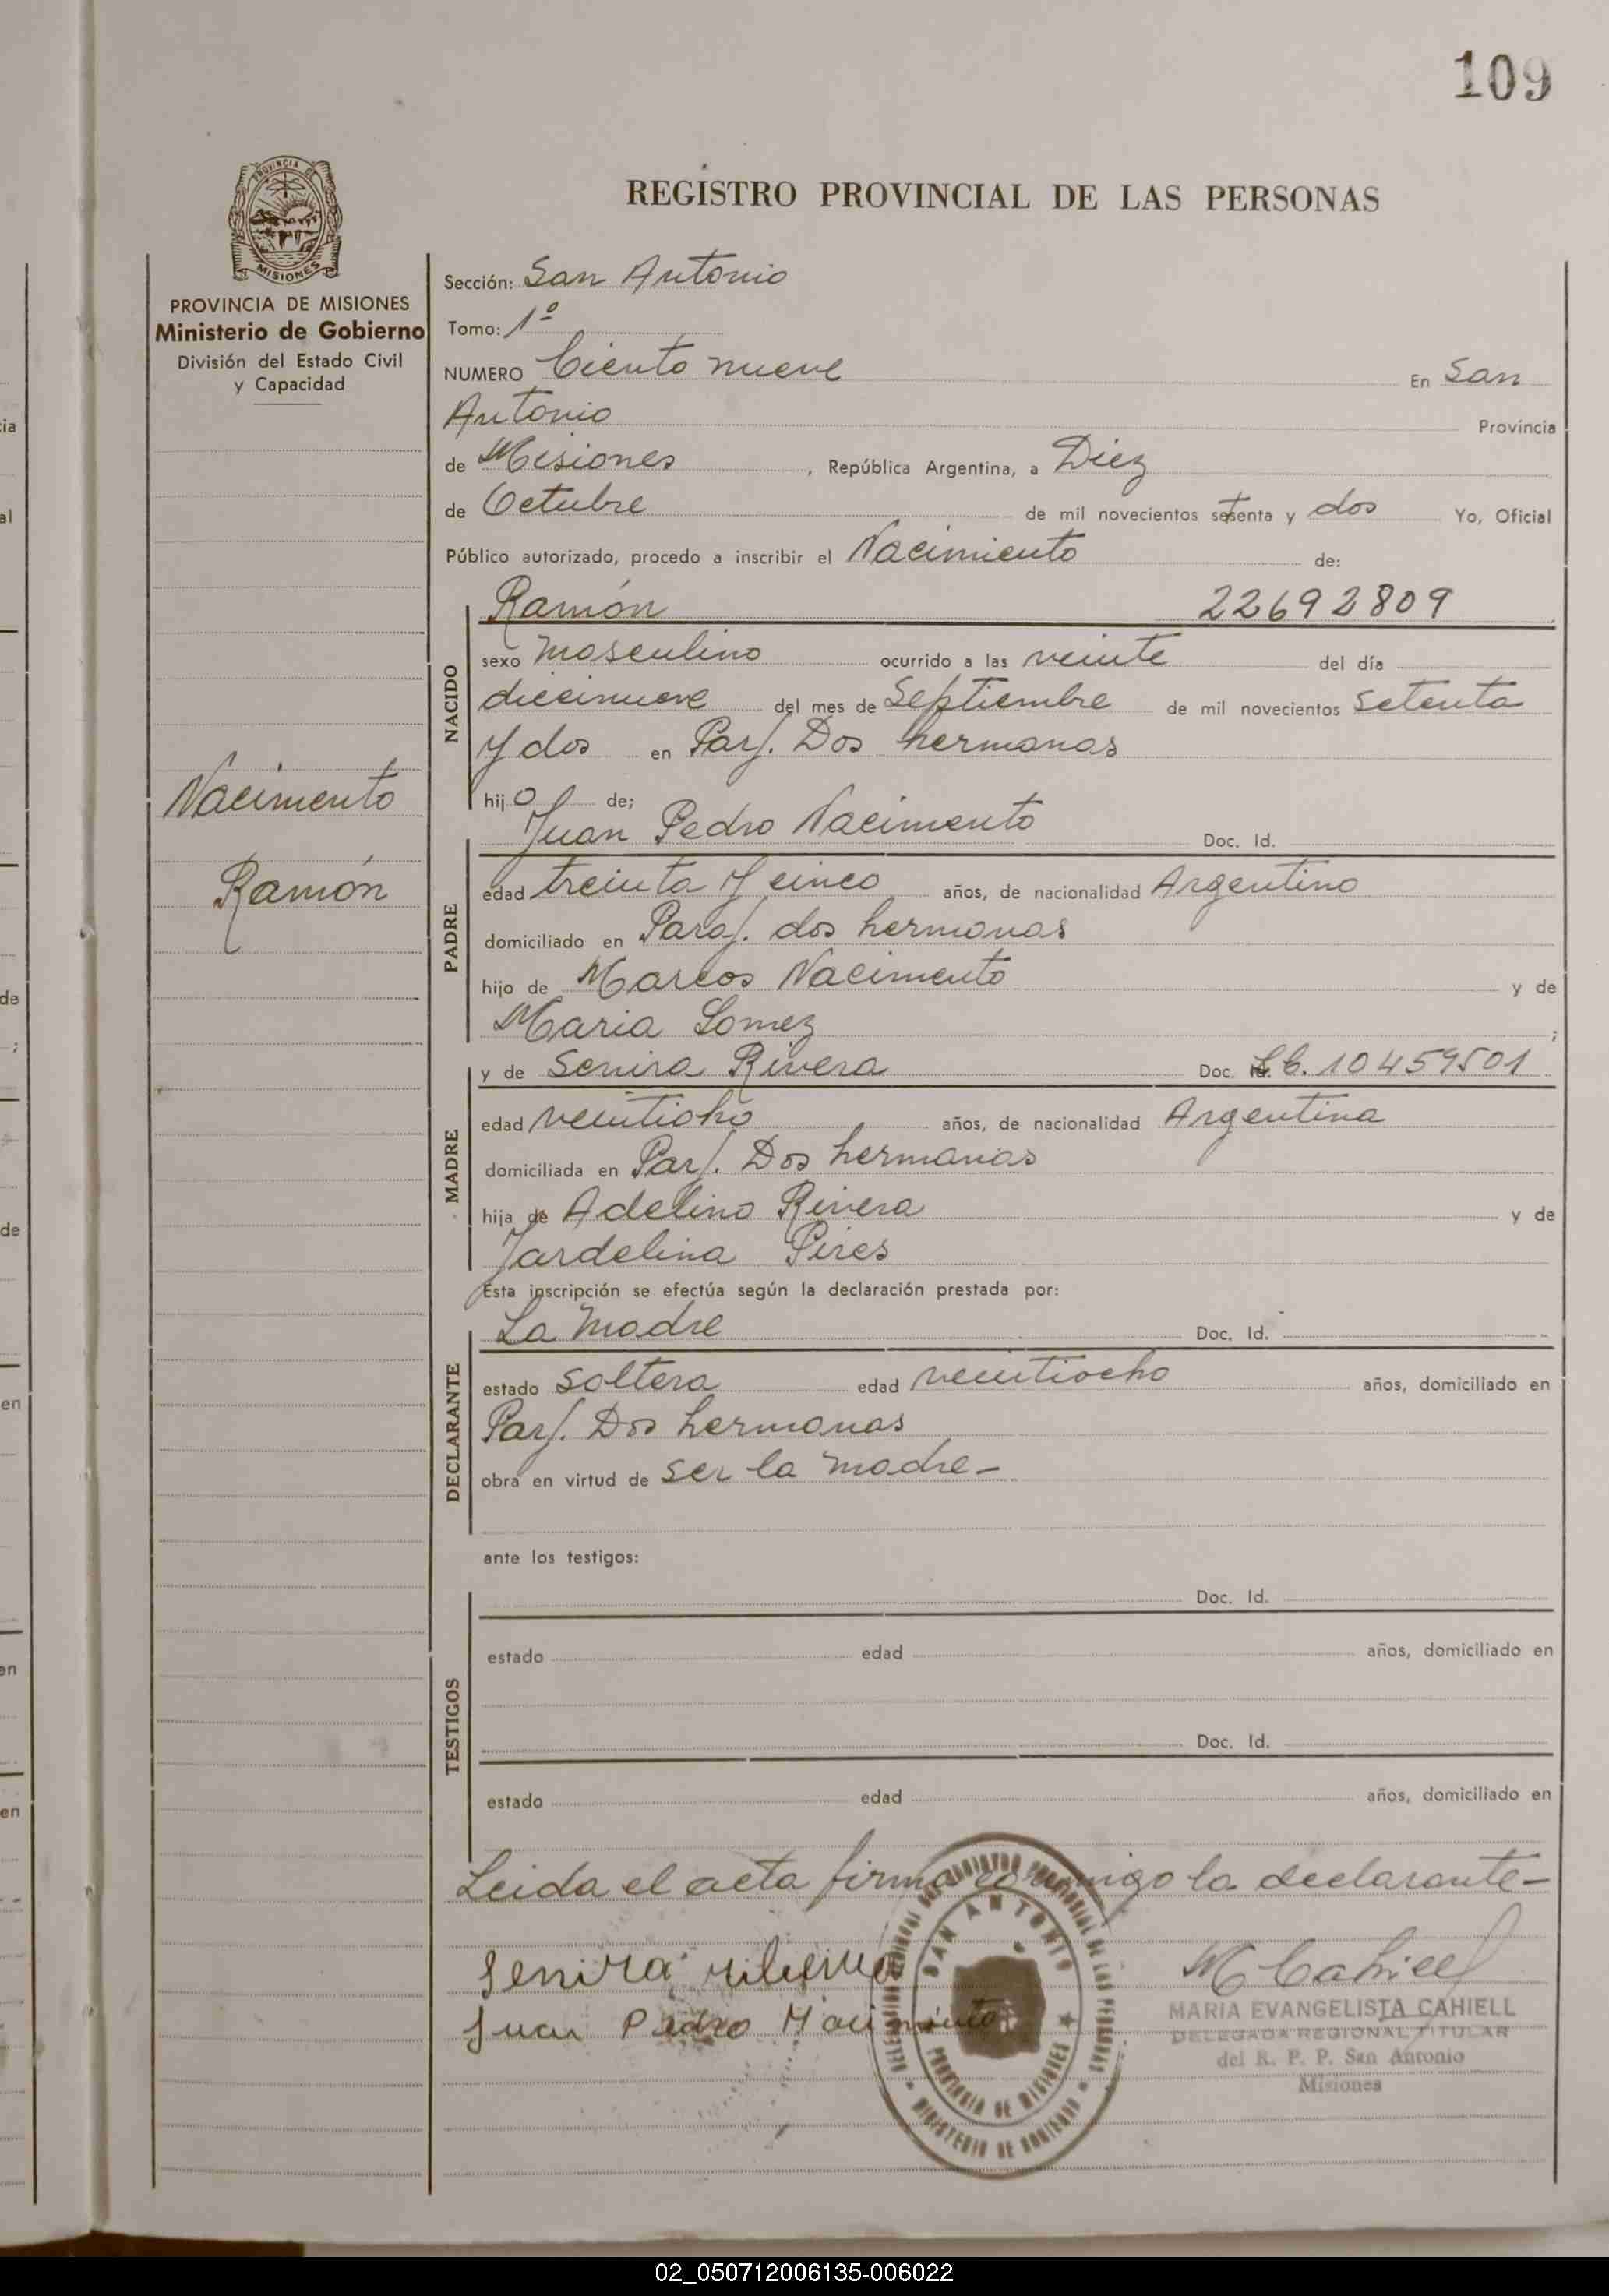 109
PROVINCIA DE MISIONES
PROVINCIA DE MISIONES
Ministerio de Gobierno
División del Estado Civil
y Capacidad
Nacimento
Ramón
REGISTRO PROVINCIAL DE LAS PERSONAS
Sección: San Antonio
Tomo: 1º
NUMERO Ciento nueve En San
Antonio Provincia
de Misiones, República Argentina, a Diez
de Octubre de mil novecientos setenta y dos Yo, Oficial
Público autorizado, procedo a inscribir el Nacimiento de:
Ramón 22692809
NACIDO
sexo masculino ocurrido a las veinte del día
diecinueve del mes de Septiembre de mil novecientos setenta
y dos en Parj. Dos hermanas
hijo de;
Juan Pedro Nacimento Doc. Id.
PADRE
edad treinta y cinco años, de nacionalidad Argentino
domiciliado en Paraj. dos hermanas
hijo de Marcos Nacimento y de
Maria Gomez ;
y de Senira Rivera Doc. Id. L.C. 10459501
MADRE
edad veintioho años, de nacionalidad Argentina
domiciliada en Parj. Dos hermanas
hija de Adelino Rivera y de
Jardelina Pires
Esta inscripción se efectúa según la declaración prestada por:
La madre Doc. Id.
DECLARANTE
estado soltera edad veintiocho años, domiciliado en
Parj. Dos hermanas
obra en virtud de ser la madre-
ante los testigos:
Doc. Id.
TESTIGOS
estado edad años, domiciliado en
Doc. Id.
estado edad años, domiciliado en
Leida el acta firma conmigo la declarante-
Senira
Juan Pedro Nacimiento
M Cahiell
MARIA EVANGELISTA CAHIELL
DELEGADA REGIONAL TITULAR
del R. P. P. San Antonio
Misiones
SAN ANTONIO
PROVINCIA DE MISIONES
02_050712006135-006022